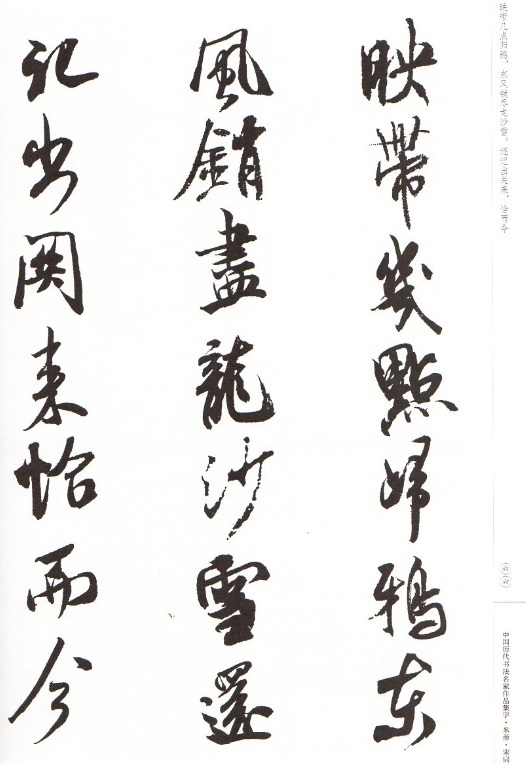 映带几点归鸦，东风销尽龙沙雪。还记出关来，恰而今
映帶幾點歸鴉東
風銷盡龍沙雪還
記出關来恰而今
中国历代书法名家作品集字·米芾·宋词